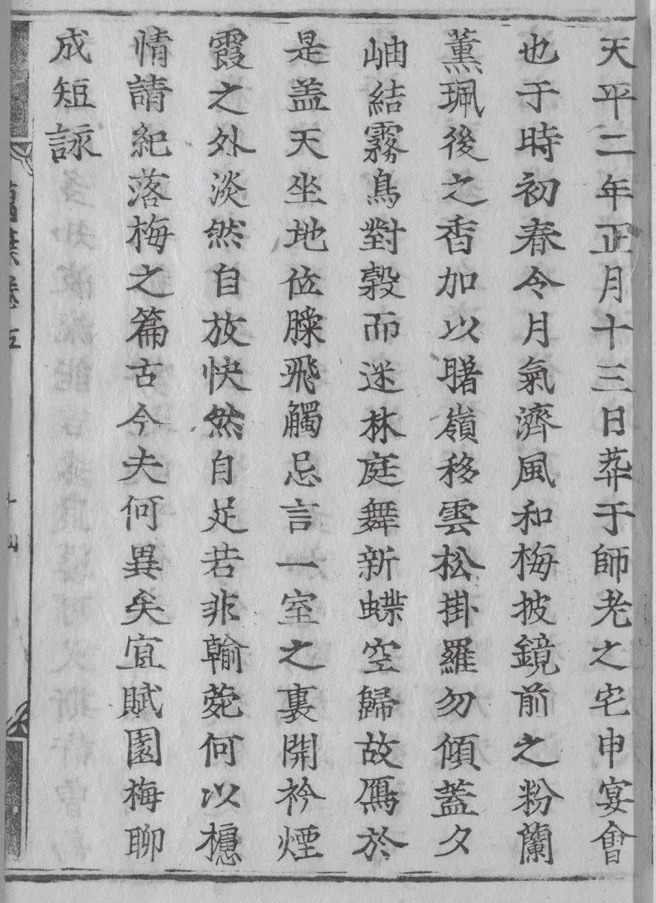 天平二年正月十三日葬于師老之宅申宴會
也于時初春令月氣濟風和梅披鏡前之粉蘭
薫珮後之香加以曙嶺移雲松掛羅勿傾蓋夕
岫結霧鳥對縠而迷林庭舞新蝶空歸故鴈於
是盖天坐地位臊飛觸忌言一室之裏開衿煙
霞之外淡然自放快然自足若非翰菀何以櫖
情請紀落梅之篇古今夫何異矣宜賦園梅聊
成短詠
萬葉卷五